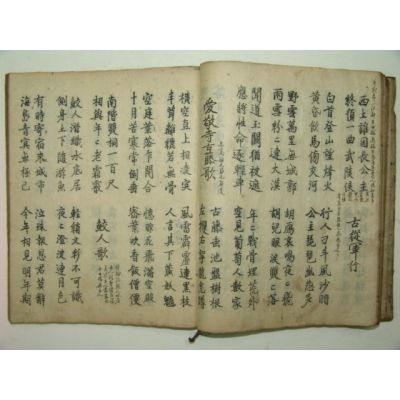 西上誰因長公主
終須一
古從軍行
白首登山望烽火
黄昏飲馬傍交河
行人刁斗風沙暗
公主琵琶幽怨多
野雲萬里無城郭
雨雪紛〻連大漠
胡鴈哀鳴夜〻飛
胡兒眼淚雙〻落
聞道玉關猶被遮
應將性命逐輕車
年〻戰骨埋荒外
空見葡萄入漢家
愛敬寺古藤歌
古藤池水盤樹根
左攫右拏龍虎蹲
橫空直上相凌突
丰茸離纚若無骨
風雷霹靂連黑枝
人言其下藏妖魑
空庭落葉乍開合
十月苦寒常倒垂
憶昨花飛滿空殿
密葉吹香飯僧遍
南階雙桐一百尺
相與年〻老霜霰
鮫人歌
鮫人潛織水底居
側身上下隨游魚
輕綃文彩不可識
夜〻澄波連月色
有時寄宿來城市
海島青冥無極已
泣珠報恩君莫辭
今年相見明年期